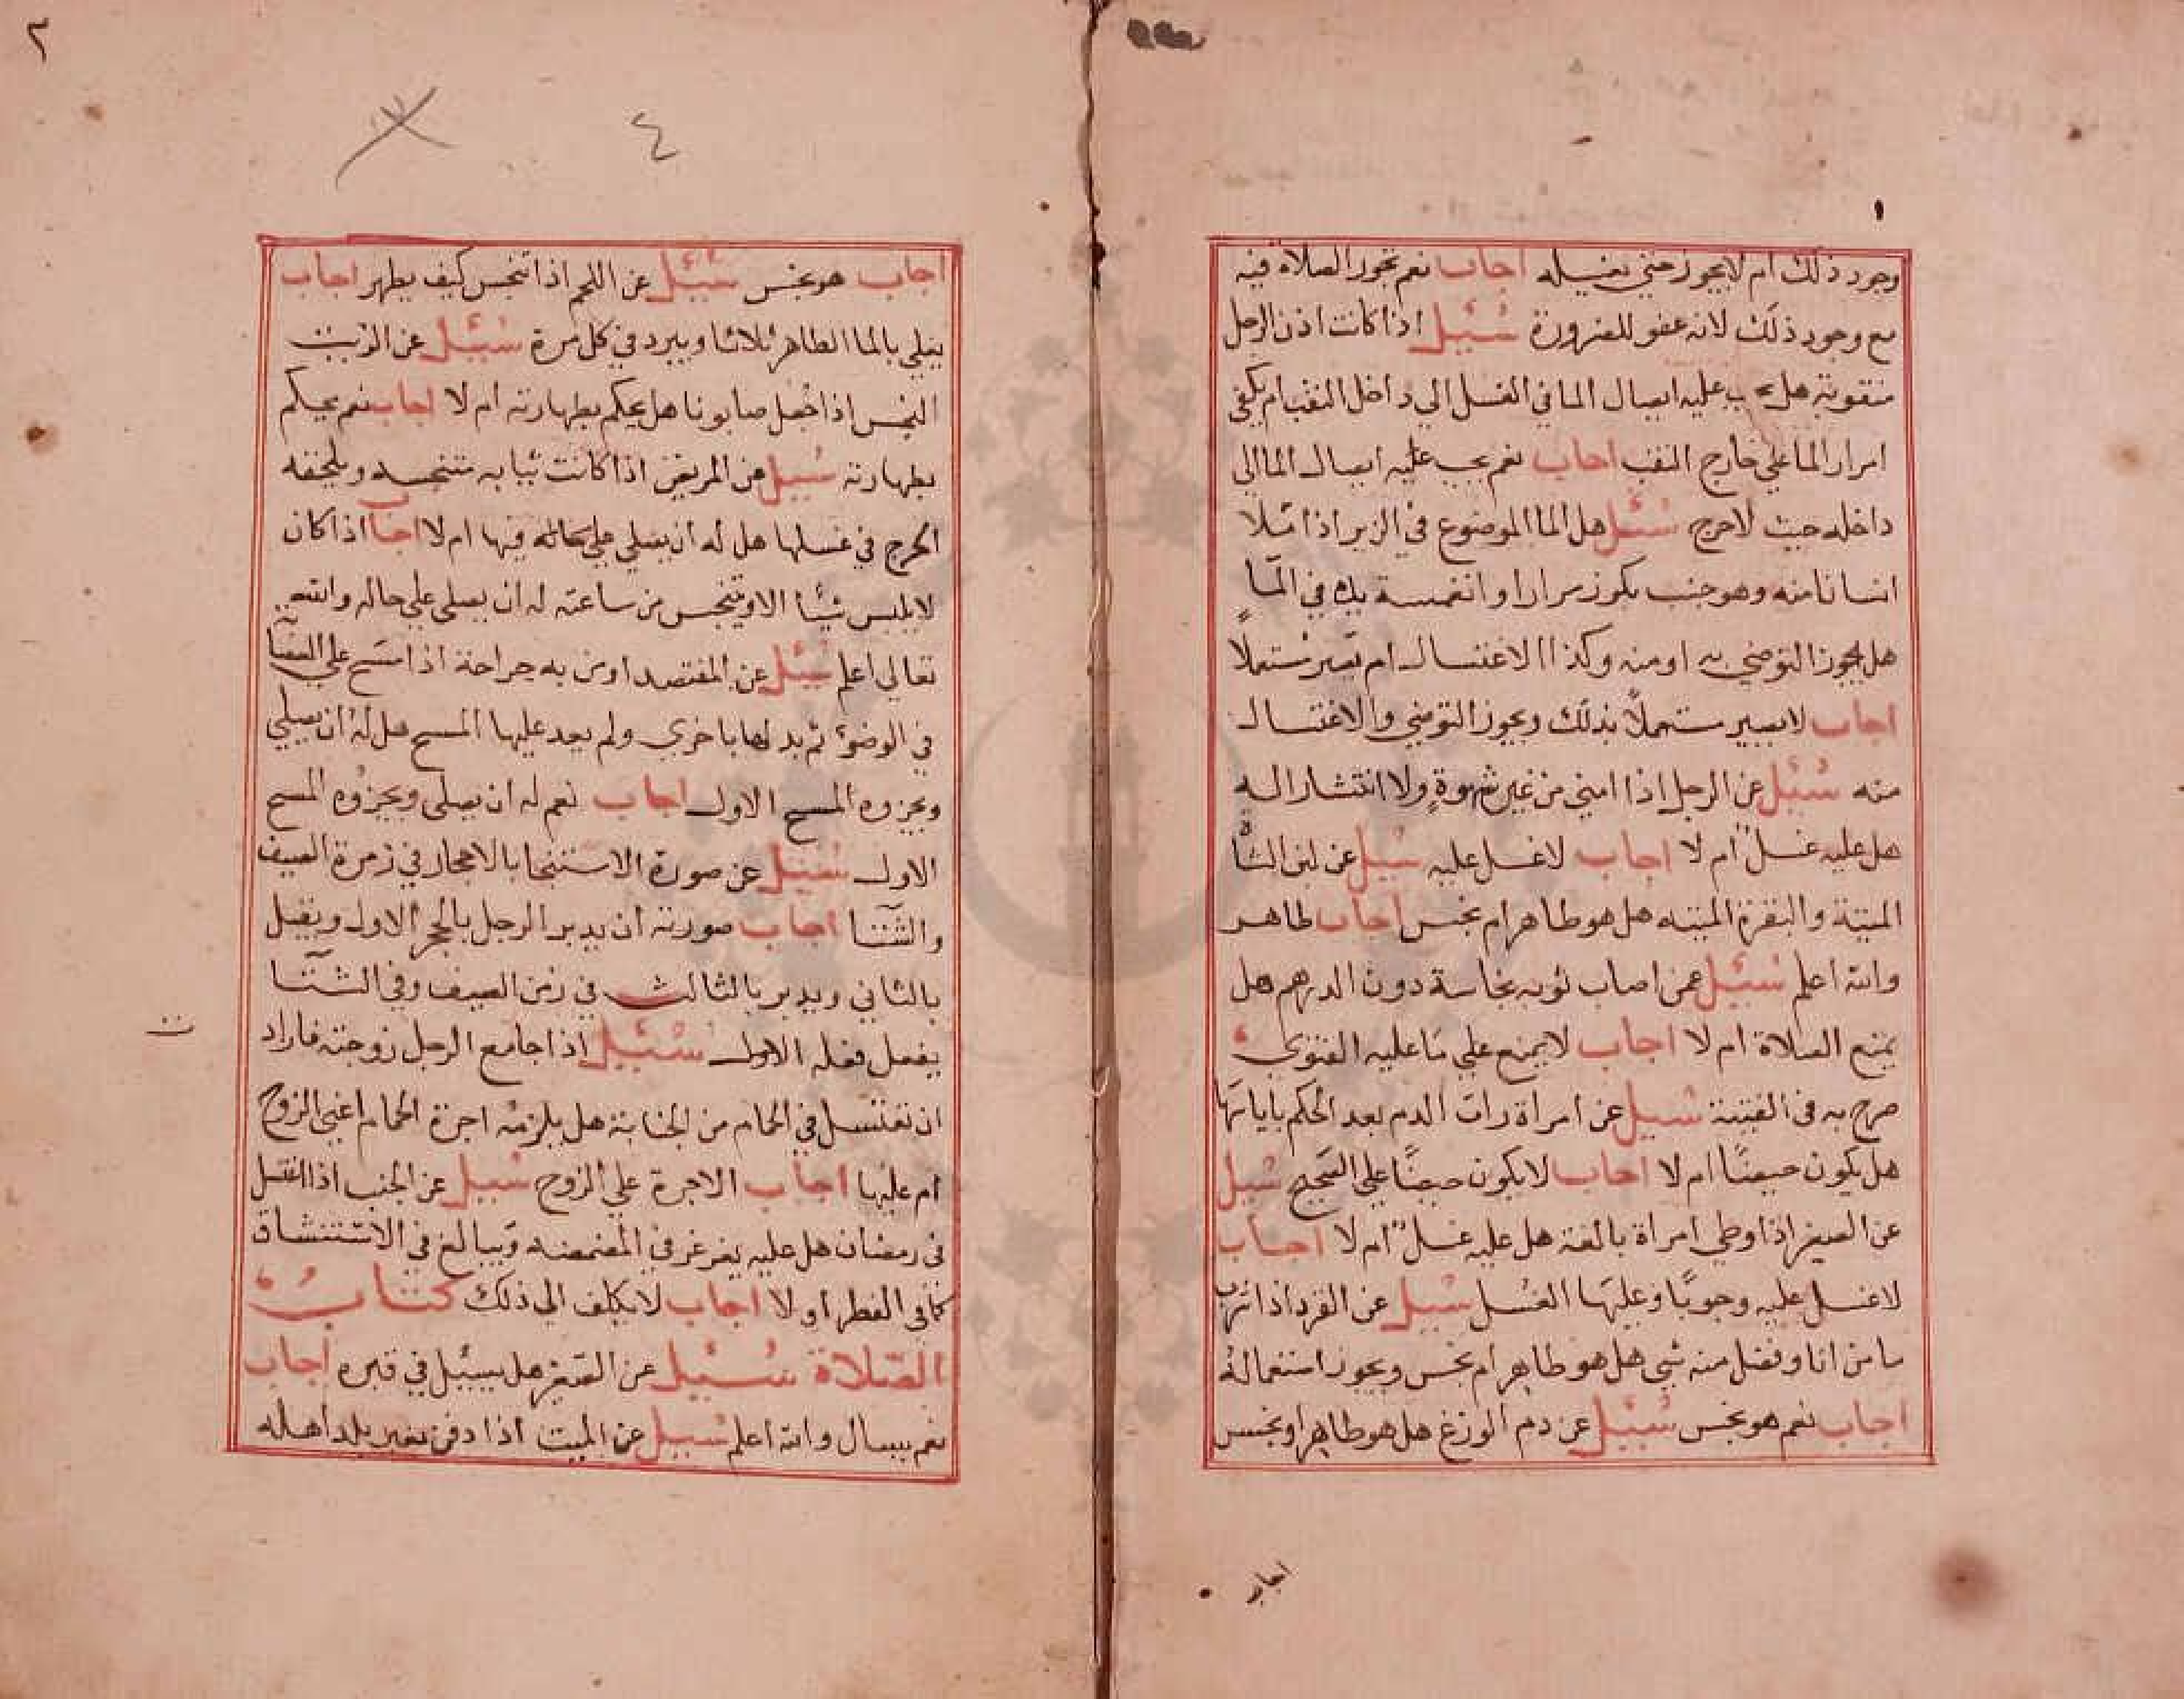 ١
وجود ذلك ام لا يجوز حتي يغسله اجاب نعم تجوز الصلاة فيه
مع وجود ذلك لانه عفو للضرورة سُيُل اذا كانت اذن الرجل
مثقوبة هل يجب عليه ايصال الما في الغسل الي داخل الثقب ام يكفي
امرار الما علي خارج الثقب اجاب نعم يجب عليه ايصال الما الي
داخله حيث لا حرج سُئل هل الما الموضوع في الزير اذا مَلا
انسانا منه وهو جنب بكوز مرارا وانغمسة يده في المآ
هل يجوز التوضي به او منه وكذا الاغتسال ام تصير مستعملاً
اجاب لا يصير مستعملاً بذلك ويجوز التوضي والاغتسال
منه سُئل عن الرجل اذا امني من غير شهوةٍ ولا انتشار اله
هل عليه غسلٌ ام لا اجاب لا غسل عليه سُيل عن لبن الشاة
الميتة والبقرة الميته هل هو طاهر ام نجس اجاب طاهر
والله اعلم سُئل عمن اصاب ثوبه نجاسة دون الدرهم هل
يمنع الصلاة ام لا اجاب لا يمنع علي مَا عليه الفتوي
صرح به في القنية سُيل عن امراة رات الدم بعد الحكم باياسها
هل يكون حيضًا ام لا اجاب لا يكون حيضًا علي الصَحيح سُيل
عن الصغير اذا وطي امراة بالغة هل عليه غسلٌ ام لا اجاب
لا غسل عليه وجوبًا وعليها الغسل سُيل عن القرد اذا شرب
ما من انا وفضل منه شي هل هو طاهر ام نجس ويجوز استعماله
اجاب نعم هو نجس سُئل عن دم الوزغ هل هو طاهر او نجس
اجاب
٢
٤
اجاب هو نجس سُئل عن اللحم اذا تنجس كيف يطهر اجاب
يغلي بالما الطاهر ثلاثا ويبرد في كل مرة سُئل عن الزيت
النجس اذا جُعل صابونا هل يحكم بطهارته ام لا اجاب نعم يحكم
بطهارته سُيل عن المريض اذا كانت ثيابه متنجسه ويلحقه
الحرج في غسلها هل له ان يصلي علي حاله فيها ام لا اجاب اذا كان
لا يلبس شيًا الا ويتنجس من ساعته له ان يصلي علي حاله والله
تعالي اعلم سُئل عن المفتصد او من به جراحة اذا مسح علي العصَابة
في الوضؤ ثم بدلها باخري ولم يعد عليها المسح هل له ان يصلي
ويجزوه المسح الاول اجاب نعم له ان يصلي ويجزوه المسح
الاول سُئل عن صورة الاستنجا بالاحجار في زمرة الصيف
والشتا اجاب صورته ان يدبر الرجل بالحجر الاول ويقبل
بالثاني ويدبر بالثالث في زمن الصيف وفي الشتا
يفعل فعله الاول سُئل اذا جامع الرجل زوجته فاراد
ان تغتسل في الحمام من الجنابة هل يلزمه اجرة الحمام اعني الزوج
ام عليها اجاب الاجرة علي الزوج سُيل عن الجنب اذا اغتسل
في رمضان هل عليه يغرغر في المضمضه ويبالغ في الاستنشاق
كما في الفطر او لا اجاب لا يكلف الي ذلك كتابُ
الصّلاة سُئل عن الصّغير هل يسئل في قبره اجاب
نعم يسال والله اعلم سُيل عن الميت اذا دفن بغير بلد اهله